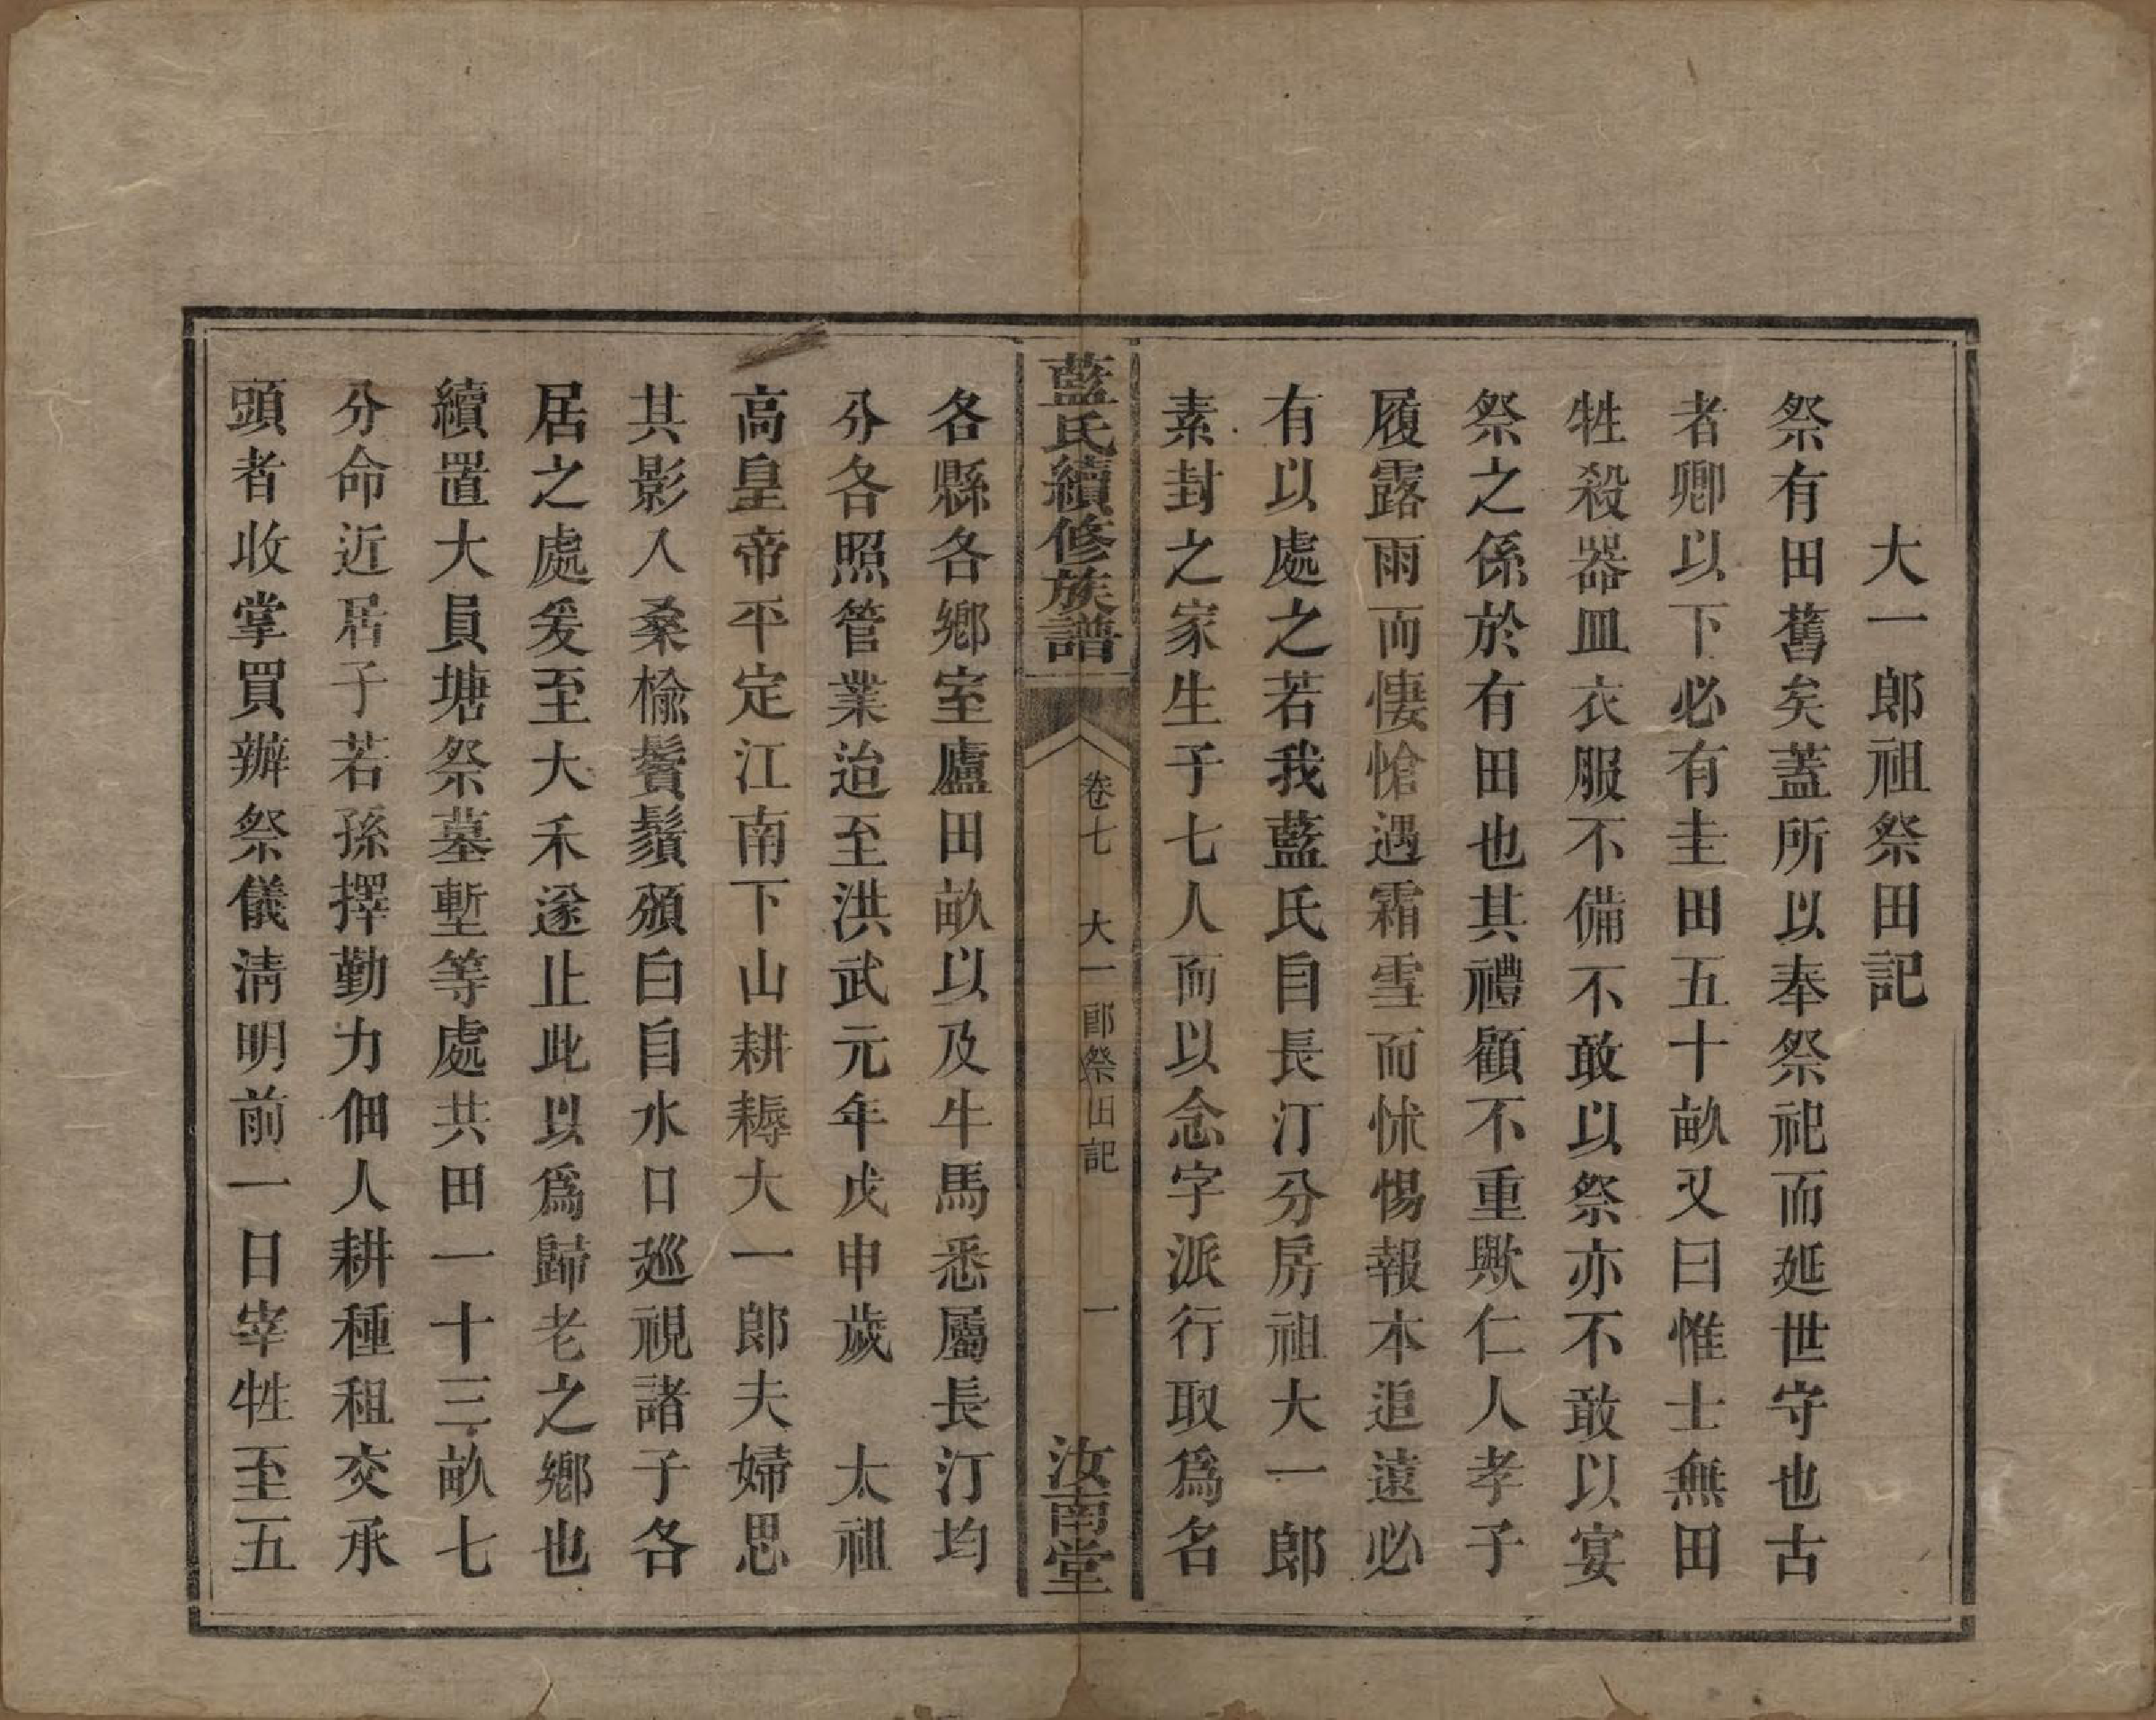 大一郎祖祭田記
祭有田舊矣蓋所以奉祭祀而延世守也古
者卿以下必有圭田五十畝又曰惟士無田
牲殺器皿衣服不備不敢以祭亦不敢以宴
祭之係於有田也其禮顧不重歟仁人孝子
履露雨而悽愴遇霜雪而怵惕報本追遠必
有以處之若我藍氏自長汀分房祖大一郎
素封之家生子七人而以念字派行取爲名
藍氏續修族譜
卷七 大一郎祭田記 一
汝南堂
各縣各鄉室廬田畝以及牛馬悉屬長汀均
分各照管業迨至洪武元年戊申歲 太祖
高皇帝平定江南下山耕耨大一郎夫婦思
其影入桑榆鬢鬚頒白自水口廵視諸子各
居之處爰至大禾遂止此以爲歸老之鄉也
續置大員塘祭墓塹等處共田一十三畝七
分命近居子若孫擇勤力佃人耕種租交承
頭者收掌買辦祭儀清明前一日宰牲至五